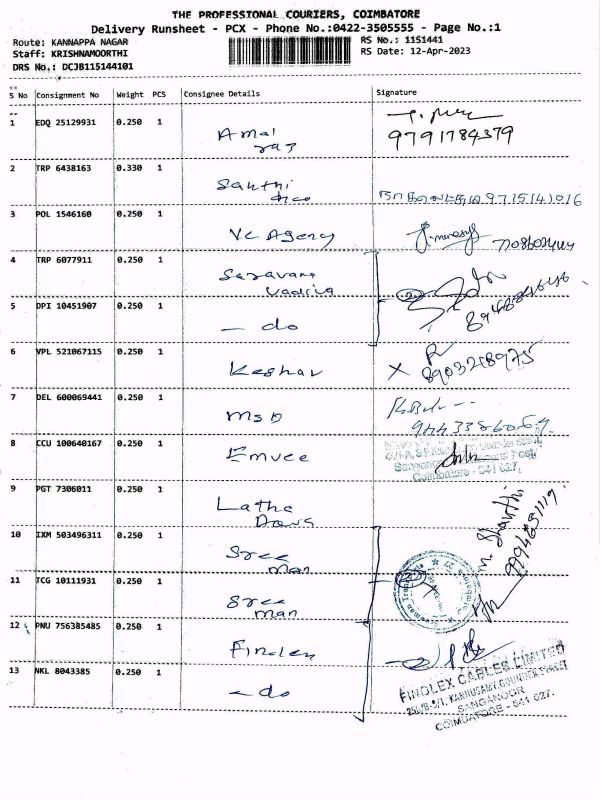 THE PROFESSIONAL COURIERS, COIMBATORE
Delivery Runsheet - PCX - Phone No.:0422-3505555 - Page No.:1
Route: KANNAPPA NAGAR
Staff: KRISHNAMOORTHI
DRS No.: DCJB115144101
RS No.: 1151441
RS Date: 12-Apr-2023
S No Consignment No Weight PCS Consignee Details Signature
1 EDQ 25129931 0.250 1 Amal
raj
9791784379
2 TRP 6438163 0.330 1 Santhi
9715141016
3 POL 1546160 0.250 1 VL Agency
4 TRP 6077911 0.250 1 Saravana
5 DPI 10451907 0.250 1 - do
6 VPL 521067115 0.250 1 Keshav
X 8903218975
7 DEL 600069441 0.250 1 MSD
8 CCU 100640167 0.250 1 Emvee
Coimbatore - 641 027.
9 PGT 7306011 0.250 1 Latha
10 IXM 503496311 0.250 1 Sree
man
M. Shanthi
11 TCG 10111931 0.250 1 Sree
man
12 PNU 756385485 0.250 1 Finolex
13 NKL 8043385 0.250 1 - do
FINOLEX CABLES LIMITED
SANGANOOR
COIMBATORE - 641 027.